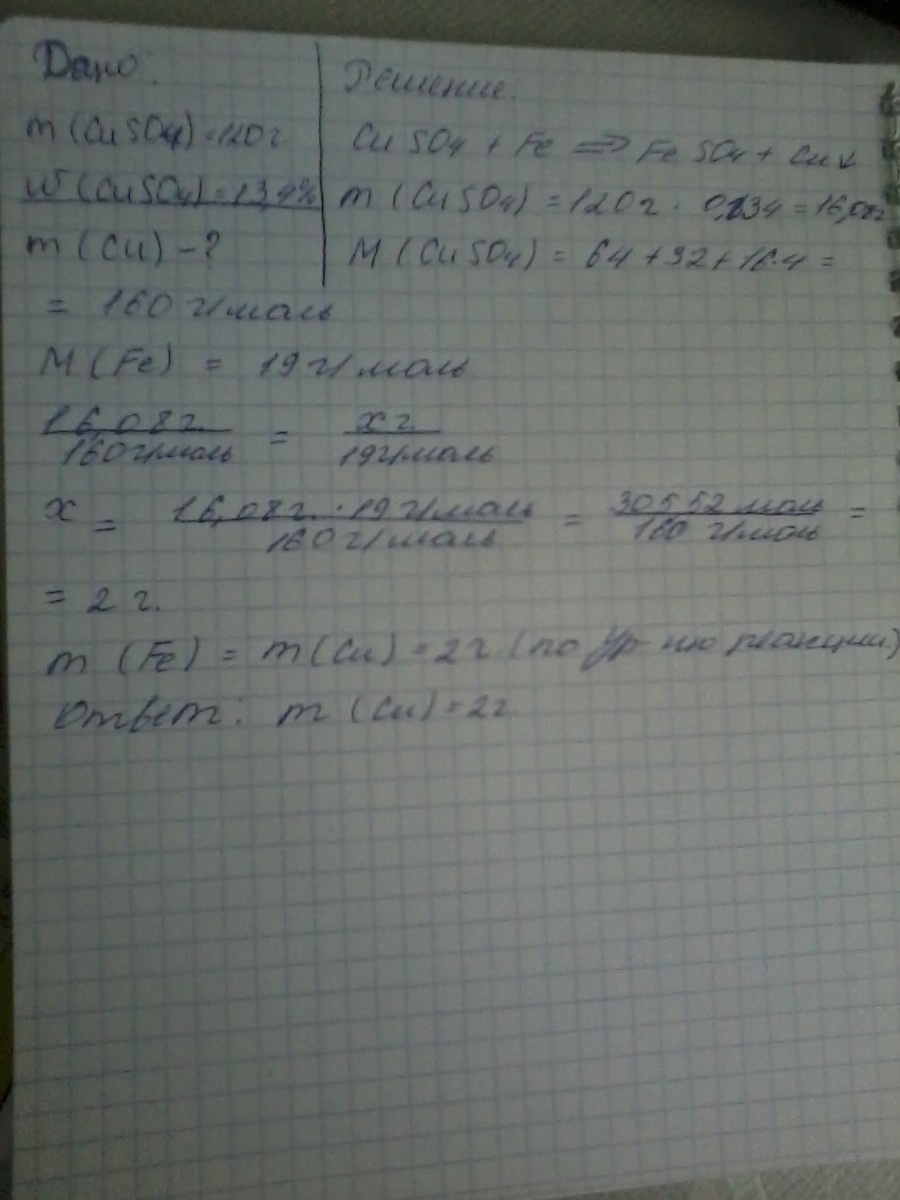 Дано:
m (CuSO4) = 120 г.
W (CuSO4) = 13,4%
m (Cu) - ?
Решение:
CuSO4 + Fe => FeSO4 + Cu↓
m (CuSO4) = 120 г · 0,134 = 16,08 г
M (CuSO4) = 64 + 32 + 16·4 =
= 160 г/моль
M (Fe) = 19 г/моль
16,08 г. / 160 г/моль = x г. / 19 г/моль
x = 16,08 г. · 19 г/моль / 160 г/моль = 305,52 моль / 160 г/моль =
= 2 г.
m (Fe) = m (Cu) = 2 г (по ур-нию реакции)
Ответ: m (Cu) = 2 г